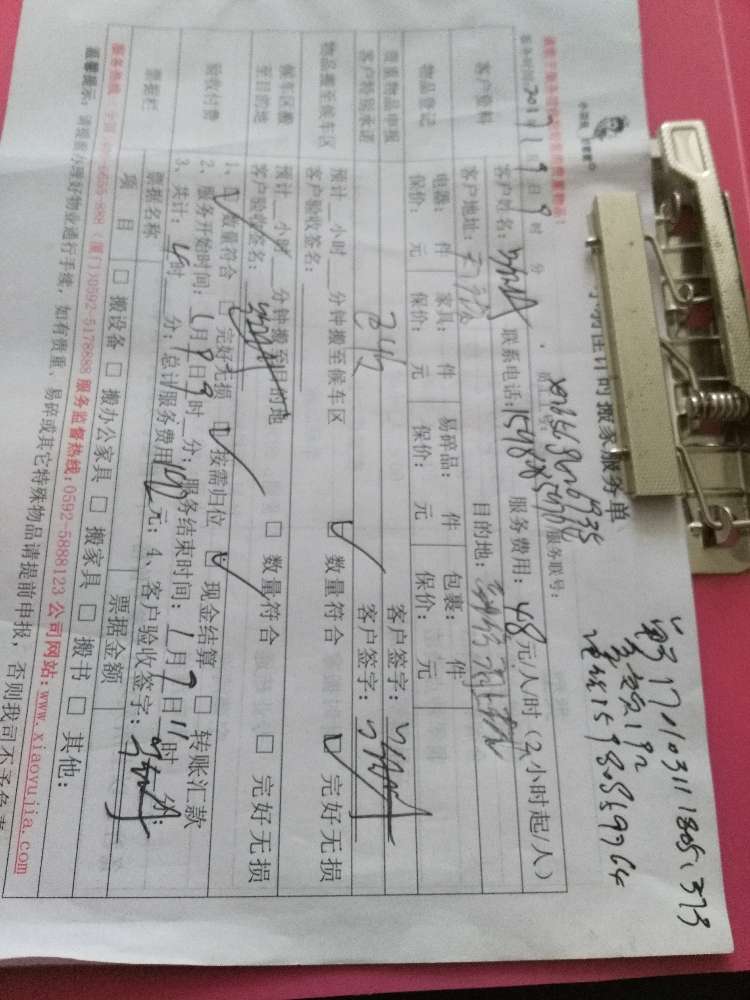 单17011031118051373
金额192
电话15980859764
计时搬家服务单
服务联号:
服务时间:2017年1月9日9时 分
客户资料
客户姓名: 联系电话: 服务费用:48元/人/时(2小时起/人)
客户地址: 目的地:
物品登记
电器: 件 家具: 件 易碎品: 件 包裹: 件
保价: 元 保价: 元 保价: 元 保价: 元
贵重物品申报 客户签字:
客户特别承诺 客户签字:
物品搬至候车区
预计 小时 分钟搬至候车区 数量符合 完好无损
客户验收签名:
候车区搬至目的地
预计 小时 分钟搬至目的地 数量符合 完好无损
客户验收签名:
验收付费
1、数量符合 完好无损 按需归位 现金结算 转账汇款
2、服务开始时间:1月9日9时 分;服务结束时间:1月9日11时 分;
3、共计:4时 分;总计服务费用192元;4、客户验收签字:
票据栏
票据名称 票据金额
项目 搬设备 搬办公家具 搬家具 搬书 其他:
(厦门)0592-5178888 服务监督热线:0592-5888123 公司网站:www.xiaoyujia.com
温馨提示:请提前办理好物业通行手续,如有贵重、易碎或其它特殊物品请提前申报,否则我司不予负责